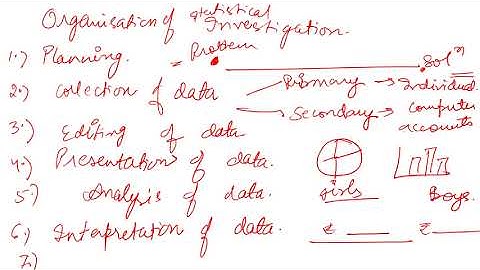 Organisation of statistical Investigation.
1.) Planning. = Problem . Solⁿ
2.) Collection of data Primary → Individual.
Secondary → Computer accounts
3.) Editing of data
4.) Presentation of data.
5.) Analysis of data. girls boys.
6.) Interpretation of data. ₹ ₹
7.)